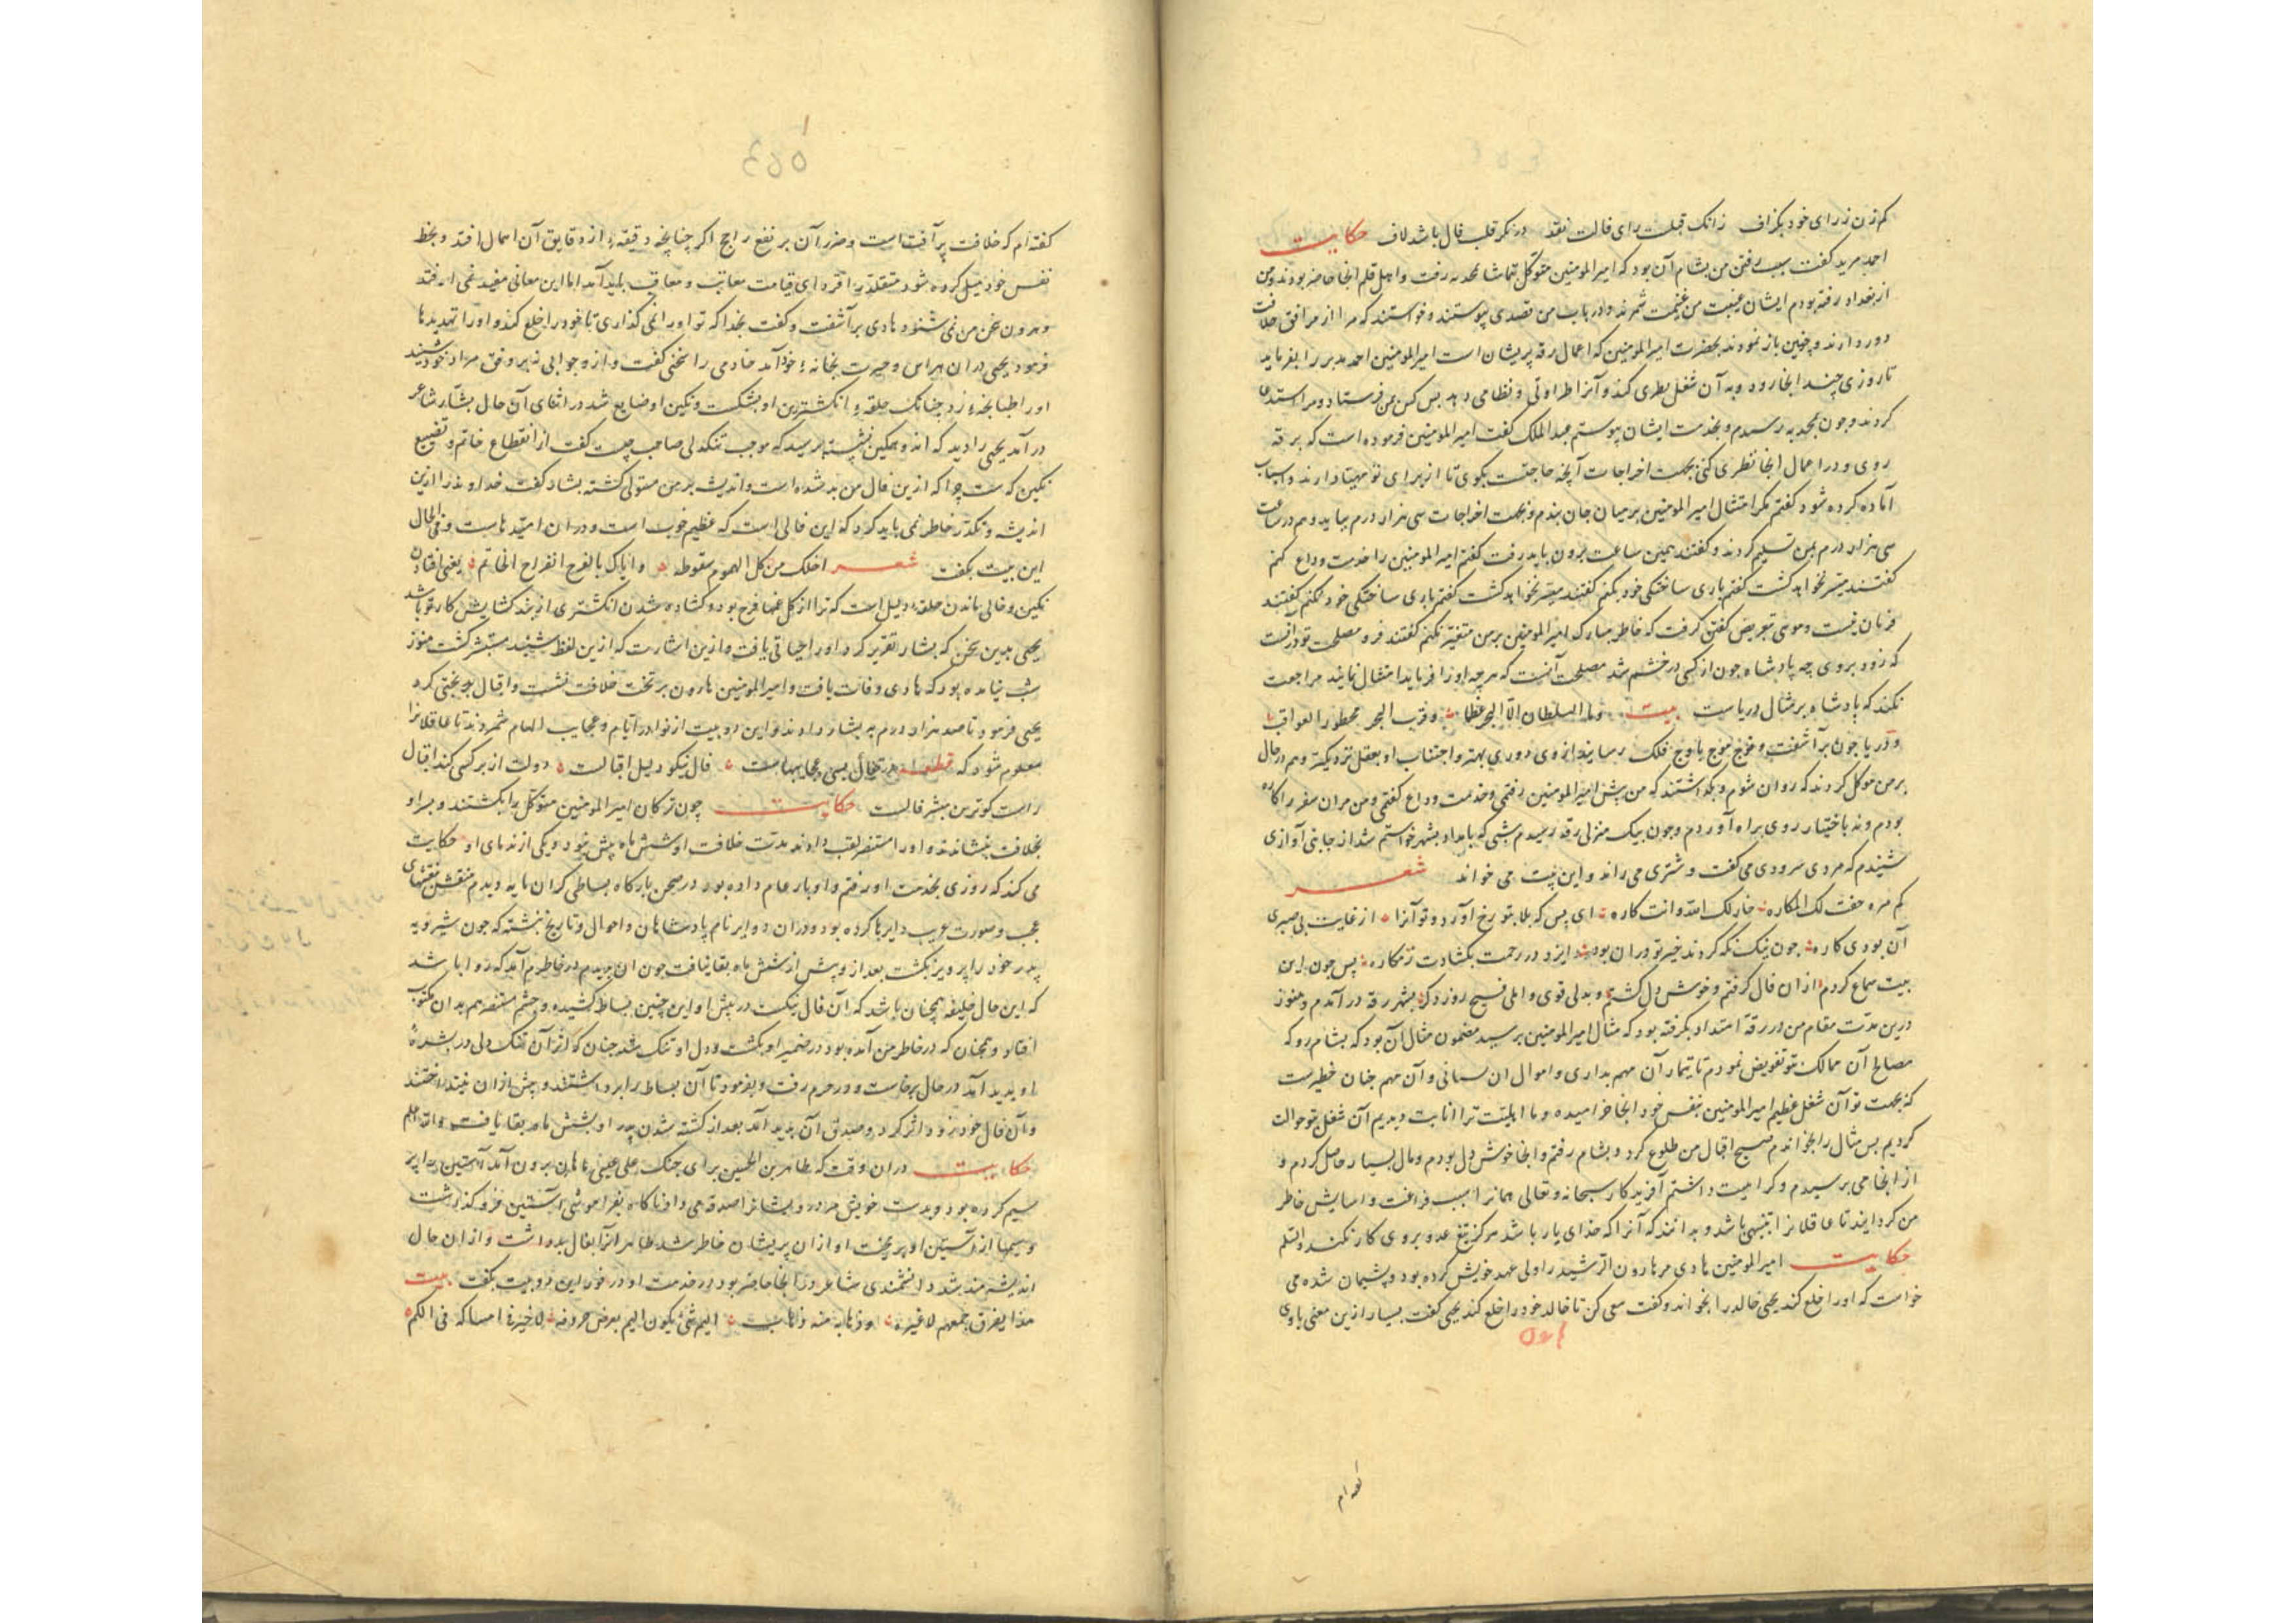 کم زن ز رای خود بگزاف زانک قبلت رای فالت نقد در نکر قلب فال باشد لاف حکایت
احمد مریر گفت سبب رفتن من بشام آن بود که امیر المومنین متوکل بتماشا محدیه رفت و اهل قلم انجا حاضر بودند ومن
از بغداد رفته بودم ایشان غیبت من غنیمت شمردند و در باب من قصدی پیوستند و خواستند که مرا از مرافق خلافت
دور دارند و چنین باز نمودند بحضرت امیر المومنین که اعمال رقه پریشان است امیر المومنین احمد مدبر را بفرماید
تا روزی چند انجا رود و به آن شغل نظری کند و آنرا طراوتی و نظامی دهد بس کس بمن فرستاد و مرا استدعا
کردند و جون بمحدیه رسیدم و بخدمت ایشان پیوستم عبد الملک گفت امیر المومنین فرموده است که برقه
روی و در اعمال انجا نظری کنی بجهت اخراجات آنچه حاجتست بکوی تا از برای تو مهیا دارند و اسباب
آماده کرده شود گفتم مکر امتثال امیر المومنین بر میان جان بندم و بجهت اخراجات سی هزار درم بباید و هم در ساعت
سی هزار درم بمن تسلیم کردند و گفتند همین ساعت برون باید رفت گفتم امیر المومنین را خدمت وداع کنم
گفتند میسر نخواهد کشت گفتم باری ساختکی خود بکنم گفتند میسر نخواهد کشت گفتم باری ساختکی خود بکنم گفتند
فرمان نیست و موسی تعریض گفتن گرفت که خاطر مبارک امیر المومنین بر من متغیر نکنم گفتند فرو مصلحت تو درانست
که زود بروی چه پادشاه جون از کسی در خشم شد مصلحت آنست که هر چه او را فرماید امتثال نمایند مراجعت
نکند که پادشاه بر مثال دریاست بیت وما السلطان الا البحر عظما وقرب البحر محظور العواقب
و دریا جون برآشفت و موج باوج فلک رسانید از وی دوری بهتر و اجتناب او بعقل نزدیکتر و هم در حال
بر من موکل کردند که روان شوم و نکذاشتند که من پیش امیر المومنین رفتمی و خدمت وداع گفتمی و من مران سفر را کاره
بودم و نه باختیار روی براه آوردم و جون بیک منزلی رقه رسیدم شبی که بامداد بشهر خواستم شد از جانبی آوازی
شنیدم که مردی سرودی می گفت و شتری می راند و این بیت می خواند شعر
کم مره حفت لک المکاره خار لک الله وانت کاره ای بس که بلا بتو رخ آورد و تو آنرا از غایت بی صبری
آن بودی کاره جون نیک نکه کردند خیر تو در ان بود و ایزد در رحمت بکشادت ز مکاره پس جون این
بیت سماع کردم ازان فال کرفتم و خوش دل کشتم و بدلی قوی و املی فسیح روز دکر بشهر رقه در آمدم و هنوز
درین مدت مقام من در رقه امتداد نکرفته بود که مثال امیر المومنین برسید مضمون مثال آن بود که بشام رو که
مصالح آن ممالک بتو تفویض نمودم تا تیمار آن مهم بداری و اموال ان بستانی و آن مهم جنان خطیرست
که بجهت تو آن شغل عظیم امیر المومنین بنفس خود انجا خرامیده و ما اهلیت ترا انابت دیدیم آن شغل بتو حوالت
کردیم بس مثال را بخواندم صبح اقبال من طلوع کرد و بشام رفتم و انجا خوش دل بودم و مال بسیار حاصل کردم و
از انجا می برسیدم و کراهیت داشتم آفریدکار سبحانه و تعالی همانرا سبب فراغت و اسایش خاطر
من کردانید تا عاقلانرا تنبیهی باشد و بدانند که آنرا که خدای یار باشد هرکز تیغ عدو بروی کار نکند والسلم
حکایت امیر المومنین هادی مر هارون الرشید را ولی عهد خویش کرده بود و پشیمان شده می
خواست که اورا خلع کند یحیی خالد را بخواند و گفت سعی کن تا خالد خود را خلع کند یحیی گفت بسیار ازین معنی با وی
گفته ام که خلافت پر آفت است و ضرر آن بر نفع راجح اکر چنانچه دقیقه از دقایق آن اهمال افتد و بحظ
نفس خواذ میل کرده شود متقلد را فردای قیامت معاتب و معاقب باید آمد اما این معانی مفید نمی افتد
و هرون سخن من نمی شنود هادی برآشفت و گفت بخدا که تو اورا نمی کذاری تا خود را خلع کند و اورا تهدیدها
فرمود یحیی دران هراس و حیرت بخانه خود آمد خادمی را سخنی گفت و ازو جوابی نه بر وفق مراد خود شنید
اورا طبانچه زد چنانک حلقه انکشترین او بشکست و نکین او ضایع شد در اثنای آن حال بشار شاعر
در آمد یحیی را دید که اندوهکین نشسته پرسید که موجب تنکدلی صاحب چیست گفت از انقطاع خاتم و تضییع
نکین که هست چرا که ازین فال من بد شده است و اندیشه بر من مستولی کشته بشار گفت خداوند را ازین
اندیشه و تکدر خاطر نمی باید کرد که این فالی است که عظیم خوب است و دران امیدهاست و فی الحال
این بیت بکفت شعر اخلک من کل الهموم سقوطه واتاک بالفرج انفراج الخاتم یعنی افتادن
نکین و خالی ماندن حلقه دلیل است که ترا از کل غمها فرج بود و کشاده شدن انکشتری از بند کشایش کار تو باشد
یحیی بدین سخن که بشار تقریر کرد اورا حیاتی یافت و ازین اشارت که ازین لفظ شنید مستبشر کشت هنوز
شب نیامده بود که هادی وفات یافت و امیر المومنین هارون بر تخت خلافت نشست و اقبال بویحیی کرد
یحیی فرمود تا صد هزار درم به بشار دادند و این دو بیت از نوادر ایام و عجایب الهام شمردند تا عاقلانرا
معلوم شود که قطعه در تفأل بسی عجایبهاست فال نیکو دلیل اقبالست دولت از بر کسی کند اقبال
راست کوترین مبشر فالست حکایت چون ترکان امیر المومنین متوکل را بکشتند و پسر او
بخلافت بنشاندند و اورا منتصر لقب دادند مدت خلافت او شش ماه بیش نبود و یکی از ندمای او حکایت
می کند که روزی بخدمت او رفتم و او بار عام داده بود در صحن بارکاه بساطی کران مایه دیدم منقش بنقشهای
عجب و صورت غریب دایرها کرده بود و دران دوایر نام پادشاهان و احوال و تاریخ نبشته که جون شیرویه
پدر خود را پرویز بکشت بعد ازو بیش از شش ماه بقا نیافت جون ان بدیدم در خاطرم آمد که روا باشد
که این حال خلیفه همچنان باشد که آن فال نیکست در پیش او این چنین بساط کشیده و چشم منتصر هم بدان مکتوب
افتاد و همچنان که در خاطر من آمده بود در ضمیر او بکشت و دل او تنک شد جنان که اثر آن تنک دلی در بشره
او پدید آمد در حال برخاست و در حرم رفت و بفرمود تا آن بساط را برداشتند و پیش ازان نینداختند
و آن فال خود زود اثر کرد و صدق آن پدید آمد بعد از کشته شدن پدر او بشش ماه بقا نیافت والله اعلم
حکایت دران وقت که طاهر بن الحسین برای جنک علی عیسی ماهان برون آمد آستین پر از
سیم کرده بود و بدست خویش مر درویشانرا صدقه می داد ناکاه بفراموشی آستین فرو کذاشت
و سیمها از آستین او بریخت او ازان پریشان خاطر شد طاهر آنرا بفال بد داشت و ازان حال
اندیشه مند شد دانشمندی شاعر در انجا حاضر بود در خدمت او در فور این دو بیت بکفت بیت
هذا یفرق جمعهم لا غیره وذهابه منه ذهاب الهم شئ یکون الهم بعض حروفه لا خیر فی امساکه فی الکم
گفته ام